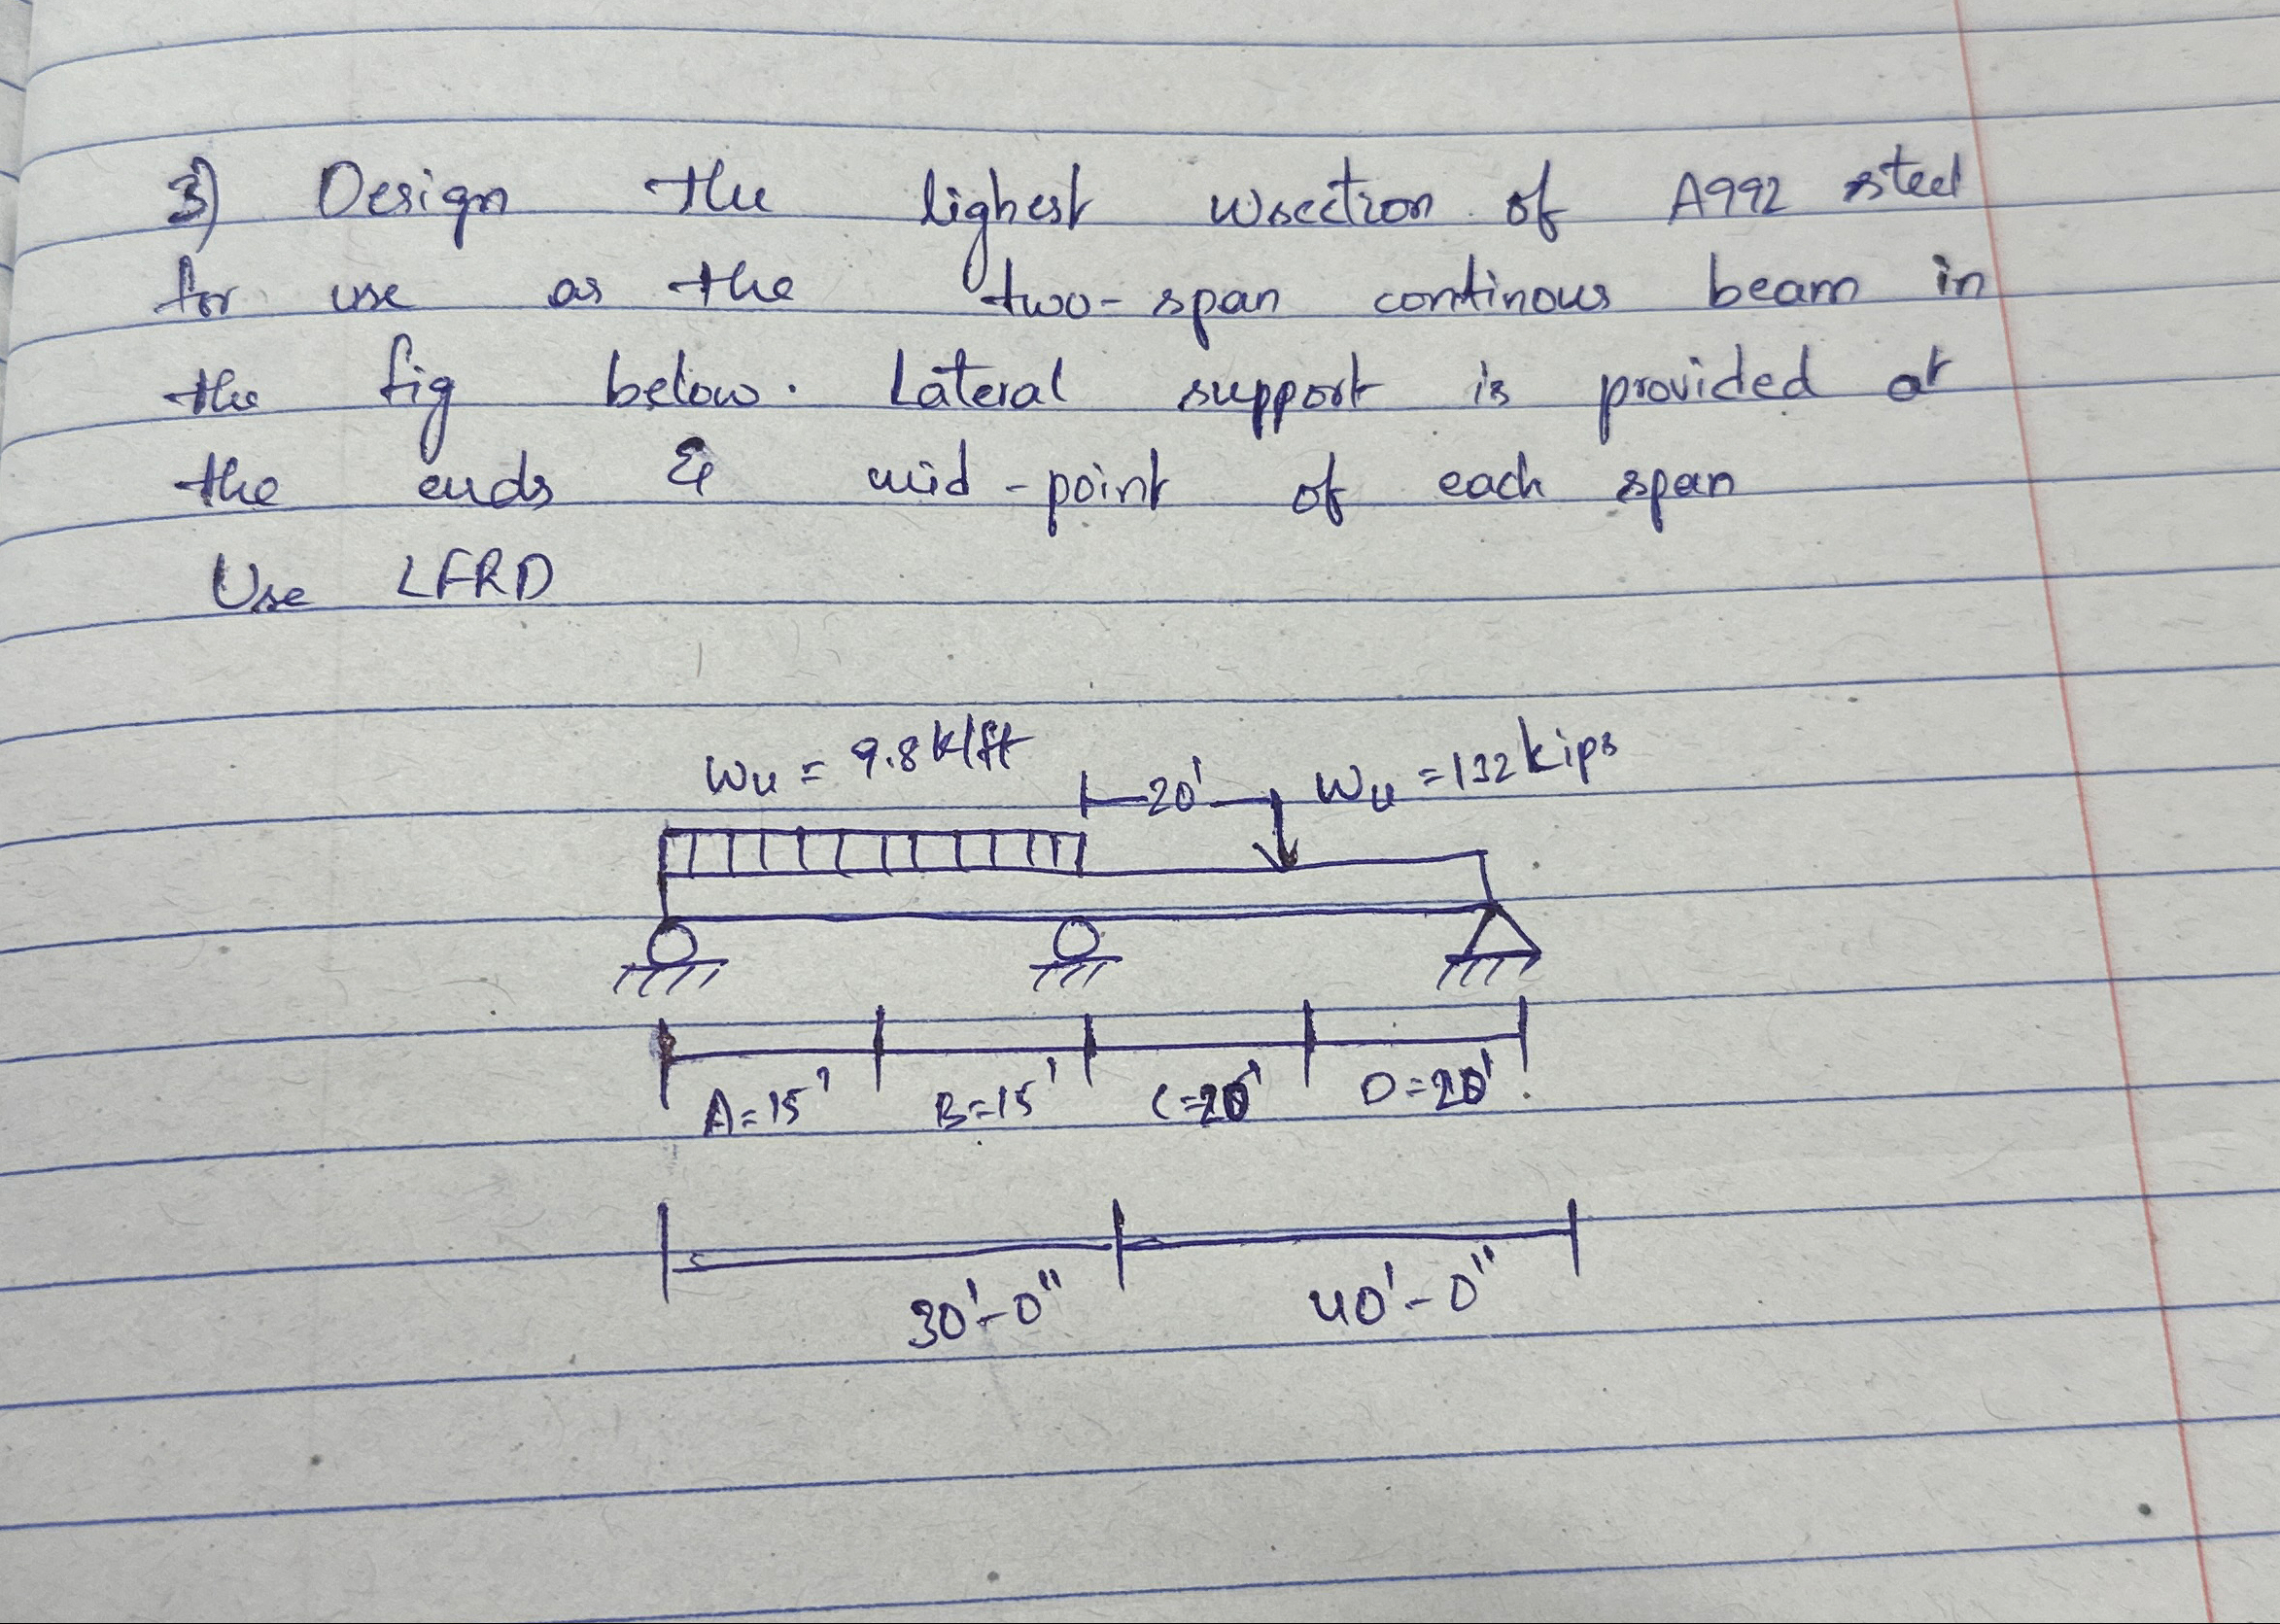 3) Design the lighest wsection of A992 steel
for use as the two-span continous beam in
the fig below. Lateral support is provided at
the ends & mid-point of each span
Use LFRD
Wu = 9.8k/ft
20' Wu = 132kips
A=15' B=15' C=20' D=20'
30'-0" 40'-0"